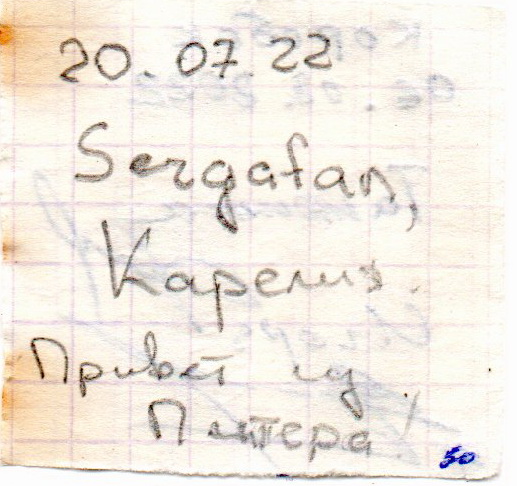 20.07.22
Sergafan,
Карелия.
Привет из
Питера!
50